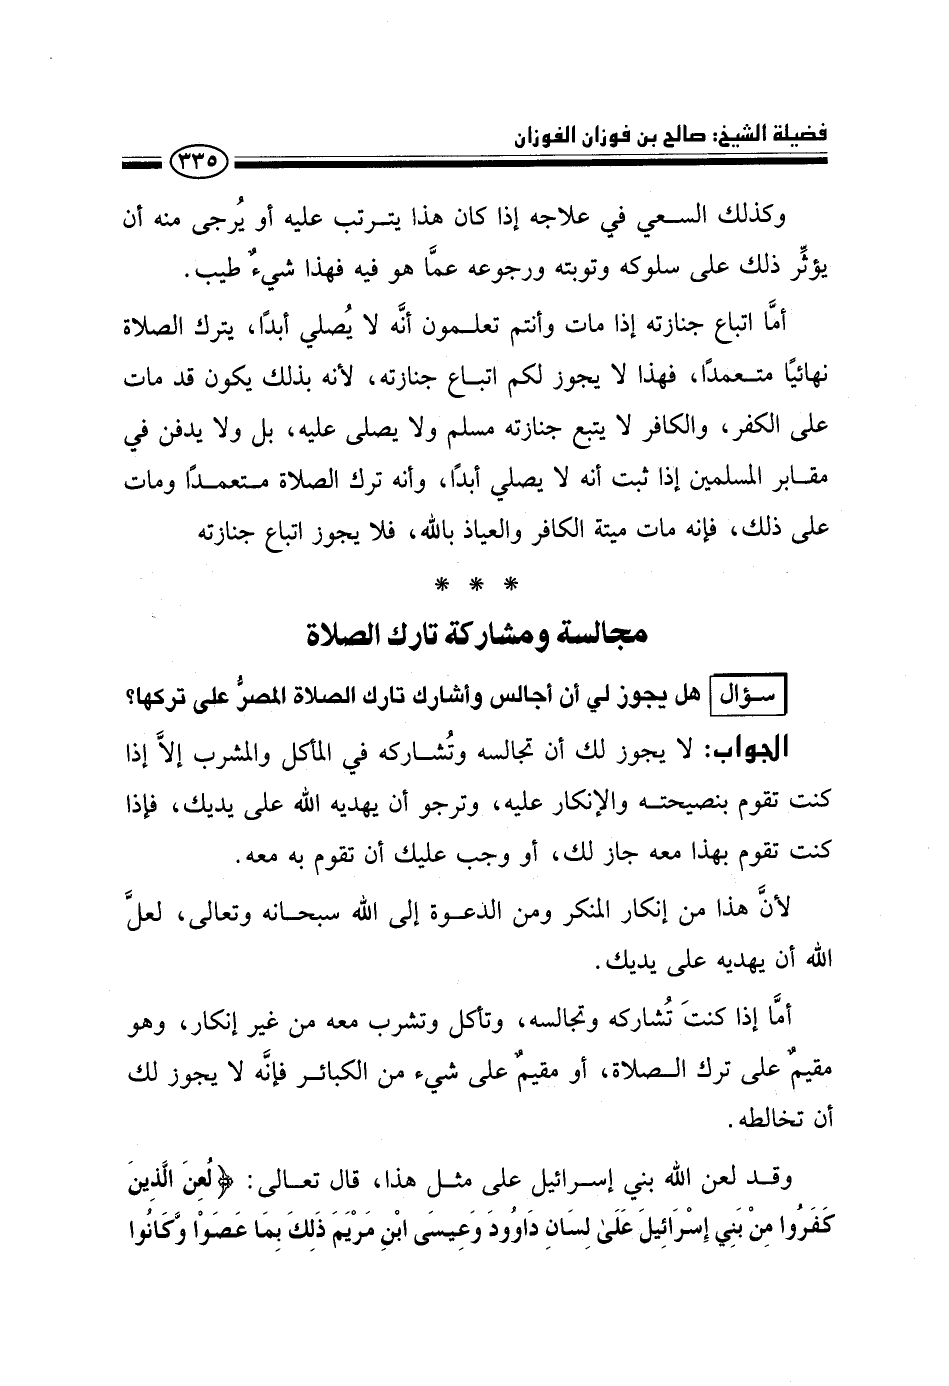 فضيلة الشيخ: صالح بن فوزان الفوزان
٣٣٥
وكذلك السعي في علاجه إذا كان هذا يترتب عليه أو يُرجى منه أن
يؤثِّر ذلك على سلوكه وتوبته ورجوعه عمَّا هو فيه فهذا شيءٌ طيب.
أمَّا اتباع جنازته إذا مات وأنتم تعلمون أنَّه لا يُصلي أبدًا، يترك الصلاة
نهائيًا متعمدًا، فهذا لا يجوز لكم اتباع جنازته، لأنه بذلك يكون قد مات
على الكفر، والكافر لا يتبع جنازته مسلم ولا يصلى عليه، بل ولا يدفن في
مقابر المسلمين إذا ثبت أنه لا يصلي أبدًا، وأنه ترك الصلاة متعمدًا ومات
على ذلك، فإنه مات ميتة الكافر والعياذ بالله، فلا يجوز اتباع جنازته
* * *
مجالسة ومشاركة تارك الصلاة
سؤال هل يجوز لي أن أجالس وأشارك تارك الصلاة المصرُّ على تركها؟
الجواب: لا يجوز لك أن تجالسه وتُشاركه في المأكل والمشرب إلاَّ إذا
كنت تقوم بنصيحته والإنكار عليه، وترجو أن يهديه الله على يديك، فإذا
كنت تقوم بهذا معه جاز لك، أو وجب عليك أن تقوم به معه.
لأنَّ هذا من إنكار المنكر ومن الدعوة إلى الله سبحانه وتعالى، لعلَّ
الله أن يهديه على يديك.
أمَّا إذا كنتَ تُشاركه وتجالسه، وتأكل وتشرب معه من غير إنكار، وهو
مقيمٌ على ترك الصلاة، أو مقيمٌ على شيء من الكبائر فإنَّه لا يجوز لك
أن تخالطه.
وقد لعن الله بني إسرائيل على مثل هذا، قال تعالى: ﴿لُعِنَ الَّذِينَ
كَفَرُوا مِنْ بَنِي إِسْرَائِيلَ عَلَىٰ لِسَانِ دَاوُودَ وَعِيسَى ابْنِ مَرْيَمَ ذَلِكَ بِمَا عَصَوْا وَّكَانُوا